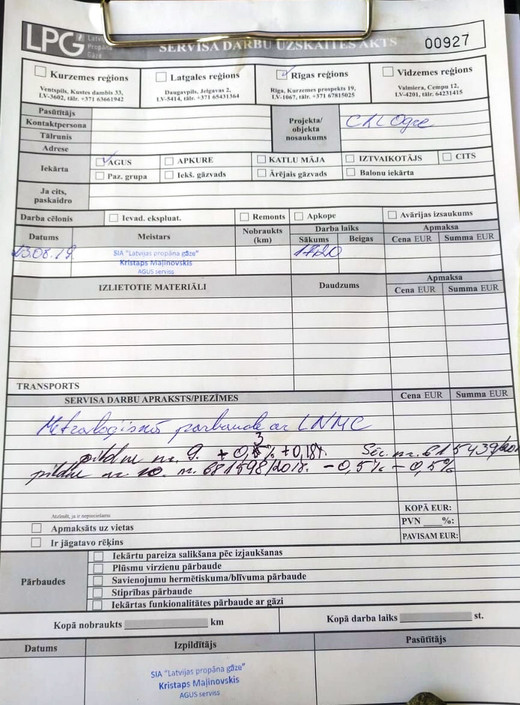 LPG Latvijas Propāna Gāze
SERVISA DARBU UZSKAITES AKTS 00927
Kurzemes reģions Latgales reģions Rīgas reģions Vidzemes reģions
Ventspils, Kustes dambis 33, Daugavpils, Jelgavas 2, Rīga, Kurzemes prospekts 19, Valmiera, Cempu 12,
LV-3602, tālr. +371 63661942 LV-5414, tālr. +371 65431364 LV-1067, tālr. +371 67815025 LV-4201, tālr. 64231415
Pasūtītājs
Kontaktpersona
Tālrunis
Adrese
Projekta/
objekta
nosaukums
Ogre
Iekārta AGUS APKURE KATLU MĀJA IZTVAIKOTĀJS CITS
Paz. grupa Iekš. gāzvads Ārējais gāzvads Balonu iekārta
Ja cits,
paskaidro
Darba cēlonis Ievad. ekspluat. Remonts Apkope Avārijas izsaukums
Datums Meistars Nobraukts (km) Darba laiks Apmaksa
Sākums Beigas Cena EUR Summa EUR
13.08.19 SIA "Latvijas propāna gāze" 1720
Kristaps Maļinovskis
AGUS serviss
IZLIETOTIE MATERIĀLI Daudzums Apmaksa
Cena EUR Summa EUR
TRANSPORTS
SERVISA DARBU APRAKSTS/PIEZĪMES Cena EUR Summa EUR
Metroloģiskā pārbaude ar LNMC
pildne nr. 9. + 0,3% +0,18%
pildne nr. 10. nr. 681598/2018. - 0,5% - 0,5%
KOPĀ EUR:
Apmaksāts uz vietas PVN ___%:
Ir jāgatavo rēķins PAVISAM EUR:
Pārbaudes
Iekārtu pareiza salikšana pēc izjaukšanas
Plūsmu virzienu pārbaude
Savienojumu hermētiskuma/blīvuma pārbaude
Stiprības pārbaude
Iekārtas funkcionalitātes pārbaude ar gāzi
Kopā nobraukts km Kopā darba laiks st.
Datums Izpildītājs Pasūtītājs
SIA "Latvijas propāna gāze"
Kristaps Maļinovskis
AGUS serviss